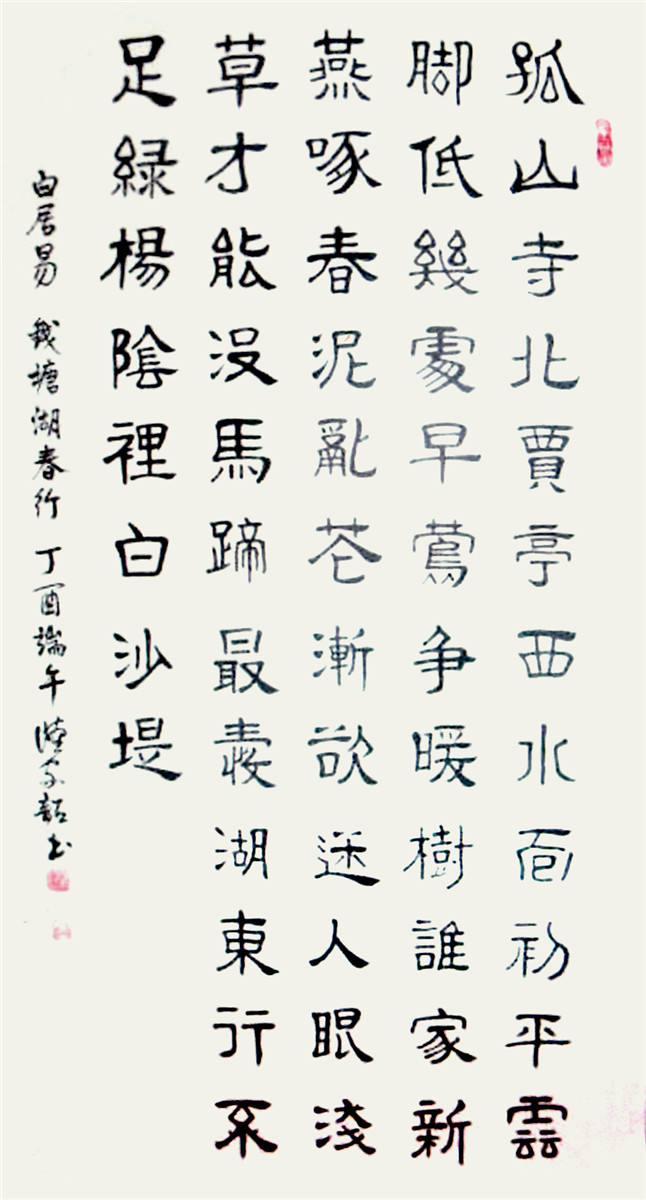 孤山寺北賈亭西水面初平雲
脚低幾處早鶯争暖樹誰家新
燕啄春泥亂花漸欲迷人眼淺
草才能没馬蹄最愛湖東行不
足緑楊陰裡白沙堤
白居易 錢塘湖春行 丁酉端午 书